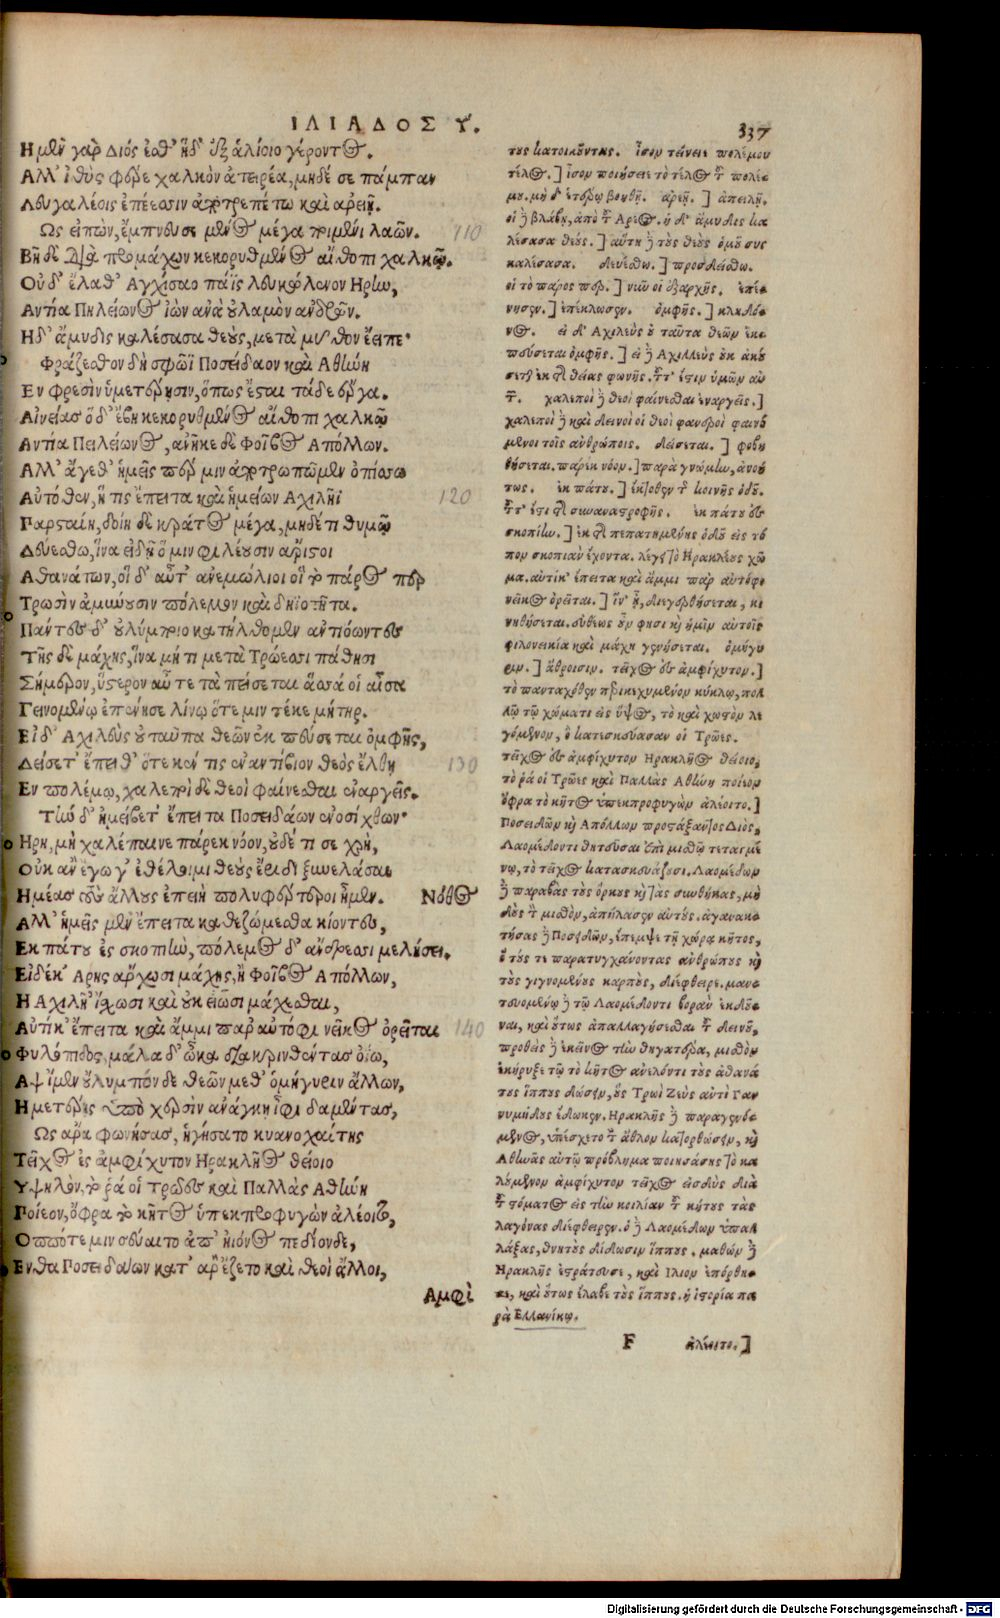 ΙΛΙΑΔΟΣ Υ.
337
Η μὲν γὰρ Διός ἐσθ' ἡ δ' ἐξ ἁλίοιο γέροντος.
Αλλ' ἰθὺς φέρε χαλκὸν ἀτειρέα, μηδέ σε πάμπαν
Λευγαλέοις ἐπέεσσιν ἀποτρεπέτω καὶ ἀρειῇ.
Ως εἰπὼν, ἔμπνευσε μένος μέγα ποιμένι λαῶν. 110
Βῆ δὲ διὰ προμάχων κεκορυθμένος αἴθοπι χαλκῷ.
Οὐδ' ἔλαθ' Αγχίσαο πάϊς λευκώλενον Ηρην,
Αντία Πηλείωνος ἰὼν ἀνὰ οὐλαμὸν ἀνδρῶν.
Ηδ' ἄμυδις καλέσασα θεοὺς, μετὰ μῦθον ἔειπε·
Φράζεσθον δὴ σφῶϊ Ποσείδαον καὶ Αθήνη
Εν φρεσὶν ὑμετέρῃσιν, ὅπως ἔσται τάδε ἔργα.
Αἰνείας ὅδ' ἔβη κεκορυθμένος αἴθοπι χαλκῷ
Αντία Πειλείωνος, ἀνῆκε δὲ Φοῖβος Απόλλων.
Αλλ' ἄγεθ' ἡμεῖς πέρ μιν ἀποτρωπῶμεν ὀπίσσω
Αὐτόθεν, ἤ τις ἔπειτα καὶ ἡμείων Αχιλῆϊ 120
Παρσταίη, δοίη δὲ κράτος μέγα, μηδέ τι θυμῷ
Δευέσθω, ἵνα εἰδῇ ὅ μιν φιλέουσιν ἄριστοι
Αθανάτων, οἱ δ' αὖτ' ἀνεμώλιοι οἳ τὸ πάρος περ
Τρωσὶν ἀμύνουσιν πόλεμον καὶ δηϊοτῆτα.
Πάντες δ' οὐλύμποιο κατήλθομεν ἀντιόωντες
Τῆς δὲ μάχης, ἵνα μή τι μετὰ Τρώεσσι πάθησι
Σήμερον, ὕστερον αὖτε τὰ πείσεται ἅσσά οἱ αἶσα
Γεινομένῳ ἐπένησε λίνῳ ὅτε μιν τέκε μήτηρ.
Εἰ δ' Αχιλεὺς οὐ ταῦτα θεῶν ἐκ πεύσεται ὀμφῆς,
Δείσετ' ἔπειθ' ὅτε κέν τις ἐναντίβιον θεὸς ἔλθῃ 130
Εν πολέμῳ, χαλεποὶ δὲ θεοὶ φαίνεσθαι ἐναργεῖς.
Τὴν δ' ἠμείβετ' ἔπειτα Ποσειδάων ἐνοσίχθων·
Ηρη, μὴ χαλέπαινε πάρεκ νόον, οὐδέ τί σε χρὴ,
Οὐκ ἂν ἔγωγ' ἐθέλοιμι θεοὺς ἔριδι ξυνελάσσαι
Ημέας τοὺς ἄλλους ἐπειὴ πολυφέρτεροι ἦμεν. Νόθος
Αλλ' ἡμεῖς μὲν ἔπειτα καθεζώμεσθα κίοντες,
Εκ πάτου ἐς σκοπιὴν, πόλεμος δ' ἄνδρεσσι μελήσει.
Εἰ δέ κ' Αρης ἄρχωσι μάχης, ἢ Φοῖβος Απόλλων,
Η Αχιλῆ' ἴσχωσι καὶ οὐκ εἰῶσι μάχεσθαι,
Αὐτίκ' ἔπειτα καὶ ἄμμι παρ αὐτόφι νεῖκος ὀρεῖται 140
Φυλόπιδος, μάλα δ' ὦκα διακρινθέντας ὀΐω,
Αψ ἴμεν οὔλυμπόνδε θεῶν μεθ' ὁμήγυριν ἄλλων,
Ημετέρῃς ὑπὸ χερσὶν ἀνάγκῃ ἶφι δαμέντας,
Ως ἄρα φωνήσας, ἡγήσατο κυανοχαίτης
Τεῖχος ἐς ἀμφίχυτον Ηρακλῆος θείοιο
Υψηλὸν, τό ῥά οἱ Τρῶες καὶ Παλλὰς Αθήνη
Ποίεον, ὄφρα τὸ κῆτος ὑπεκπροφυγὼν ἀλέοιτο,
Οππότε μιν σεύαιτο ἀπ' ἠϊόνος πεδίονδε,
Ενθα Ποσειδάων κατ' ἄρ' ἕζετο καὶ θεοὶ ἄλλοι,
Αμφὶ
τους κατοικοῦντας. ἶσον τείνειε πολέμου
τέλος.] ἶσον ποιήσειε τὸ τέλος τοῦ πολέ-
μου. μὴ δ' ἑτέρῳ βοηθῇ. ἀρειῇ.] ἀπειλῇ.
οἱ δὲ βλάβῃ, ἀπὸ τοῦ Αρεος. ἡ δ' ἄμυδις κα
λέσασα θεούς.] αὕτη δὲ τοὺς θεοὺς ὁμοῦ συγ
καλέσασα. δευέσθω.] προσδείσθω.
οἱ τὸ πάρος περ.] νῦν οἱ ἐξαρχῆς. ἐπέ-
νησεν.] ἐπέκλωσεν. ὀμφῆς.] κληδό-
νος. εἰ δ' Αχιλεὺς οὐ ταῦτα θεῶν ἐκ-
πεύσεται ὀμφῆς.] εἰ δὲ Αχιλλεὺς οὐκ ἀκού
σεται ἐκ τῆς θείας φωνῆς. τουτ' ἔστιν ὑμῶν αὐ
τῶν. χαλεποὶ δὲ θεοὶ φαίνεσθαι ἐναργεῖς.]
χαλεποὶ δὲ καὶ δεινοὶ οἱ θεοὶ φανεροὶ φαινό
μενοι τοῖς ἀνθρώποις. δείσεται.] φοβη
θήσεται. πάρεκ νόον.] παρὰ γνώμην, ἀνοή
τως. ἐκ πάτου.] ἐκτὸς τῆς κοινῆς ὁδοῦ.
τουτ' ἔστι τῆς συναναστροφῆς. ἐκ πάτου ἐς
σκοπιὴν.] ἐκ τῆς πεπατημένης ὁδοῦ εἰς τό
πον σκοπιὰν ἔχοντα. λέγει τὸ Ηρακλέους χῶ
μα. αὐτίκ' ἔπειτα καὶ ἄμμι παρ αὐτόφι
νεῖκος ὀρεῖται.] ἵν' ᾖ, διεγερθήσεται, κι
νηθήσεται. εὐθέως οὖν φησι καὶ ἡμῖν αὐτοῖς
φιλονεικία καὶ μάχη γενήσεται. ὁμήγυ
ριν.] ἄθροισιν. τεῖχος ἐς ἀμφίχυτον.]
τὸ πανταχόθεν περικεχυμένον κύκλῳ, πολ
λῷ τῷ χώματι εἰς ὕψος, τὸ καὶ χωστὸν λε
γόμενον, ὃ κατεσκεύασαν οἱ Τρῶες.
τεῖχος ἐς ἀμφίχυτον Ηρακλῆος θείοιο,
τό ῥά οἱ Τρῶες καὶ Παλλὰς Αθήνη ποίεον
ὄφρα τὸ κῆτος ὑπεκπροφυγὼν ἀλέοιτο.]
Ποσειδῶν καὶ Απόλλων προστάξαντος Διὸς,
Λαομέδοντι θητεῦσαι ἐπὶ μισθῷ τεταγμέ
νῳ, τὸ τεῖχος κατασκευάζουσι. Λαομέδων
δὲ παραβὰς τοὺς ὅρκους καὶ τὰς συνθήκας, μὴ
δοὺς τὸν μισθὸν, ἀπήλασεν αὐτούς. ἀγανακ-
τήσας δὲ Ποσειδῶν, ἔπεμψε τῇ χώρᾳ κῆτος,
ὃ τούς τε παρατυγχάνοντας ἀνθρώπους καὶ
τοὺς γιγνομένους καρποὺς, διέφθειρε. μαν-
τευομένῳ δὲ τῷ Λαομέδοντι βορὰν ἐκδοῦ-
ναι, καὶ οὕτως ἀπαλλαγήσεσθαι τοῦ δεινοῦ,
προθεὶς δὲ ἐκεῖνος τὴν θυγατέρα, μισθὸν
ἐκήρυξε τῷ τὸ κῆτος ἀνελόντι τοὺς ἀθανά
τους ἵππους δώσειν, οὓς Τρωῒ Ζεὺς ἀντὶ Γαν
νυμήδους ἔδωκεν. Ηρακλῆς δὲ παραγενό-
μενος, ὑπέσχετο τὸν ἆθλον κατορθώσειν, καὶ
Αθηνᾶς αὐτῷ πρόβλημα ποιησάσης τὸ κα
λούμενον ἀμφίχυτον τεῖχος εἰσδὺς διὰ
τοῦ στόματος εἰς τὴν κοιλίαν τοῦ κήτους τὰς
λαγόνας διέφθειρεν. ὁ δὲ Λαομέδων ὑπαλ
λάξας, θνητοὺς δίδωσιν ἵππους. μαθὼν δὲ
Ηρακλῆς ἐστράτευσε, καὶ Ιλιον ἐπόρθη-
σε, καὶ οὕτως ἔλαβε τοὺς ἵππους. ἡ ἱστορία πα
ρὰ Ελλανίκῳ.
F ἀλέοιτο.]
Digitalisierung gefördert durch die Deutsche Forschungsgemeinschaft - DFG